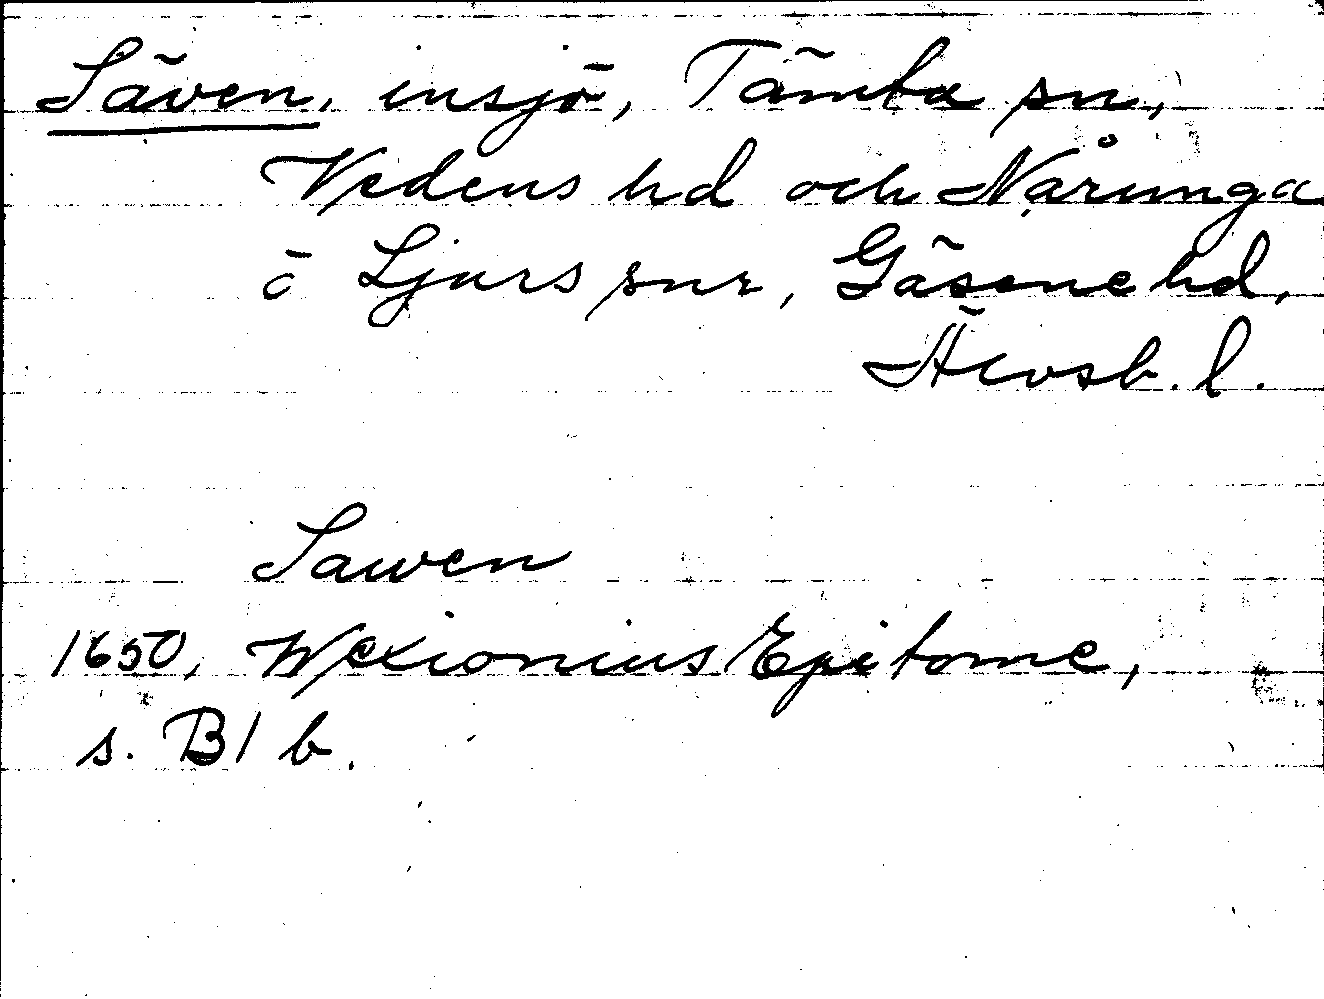 Säven, insjö, Tämta sn,
Vedens hd och Nårunga
ö Ljurs snr, Gäsene hd,
Älvsb. l.
Sawen
1650, Wexionius Epitome,
s. B1 b.